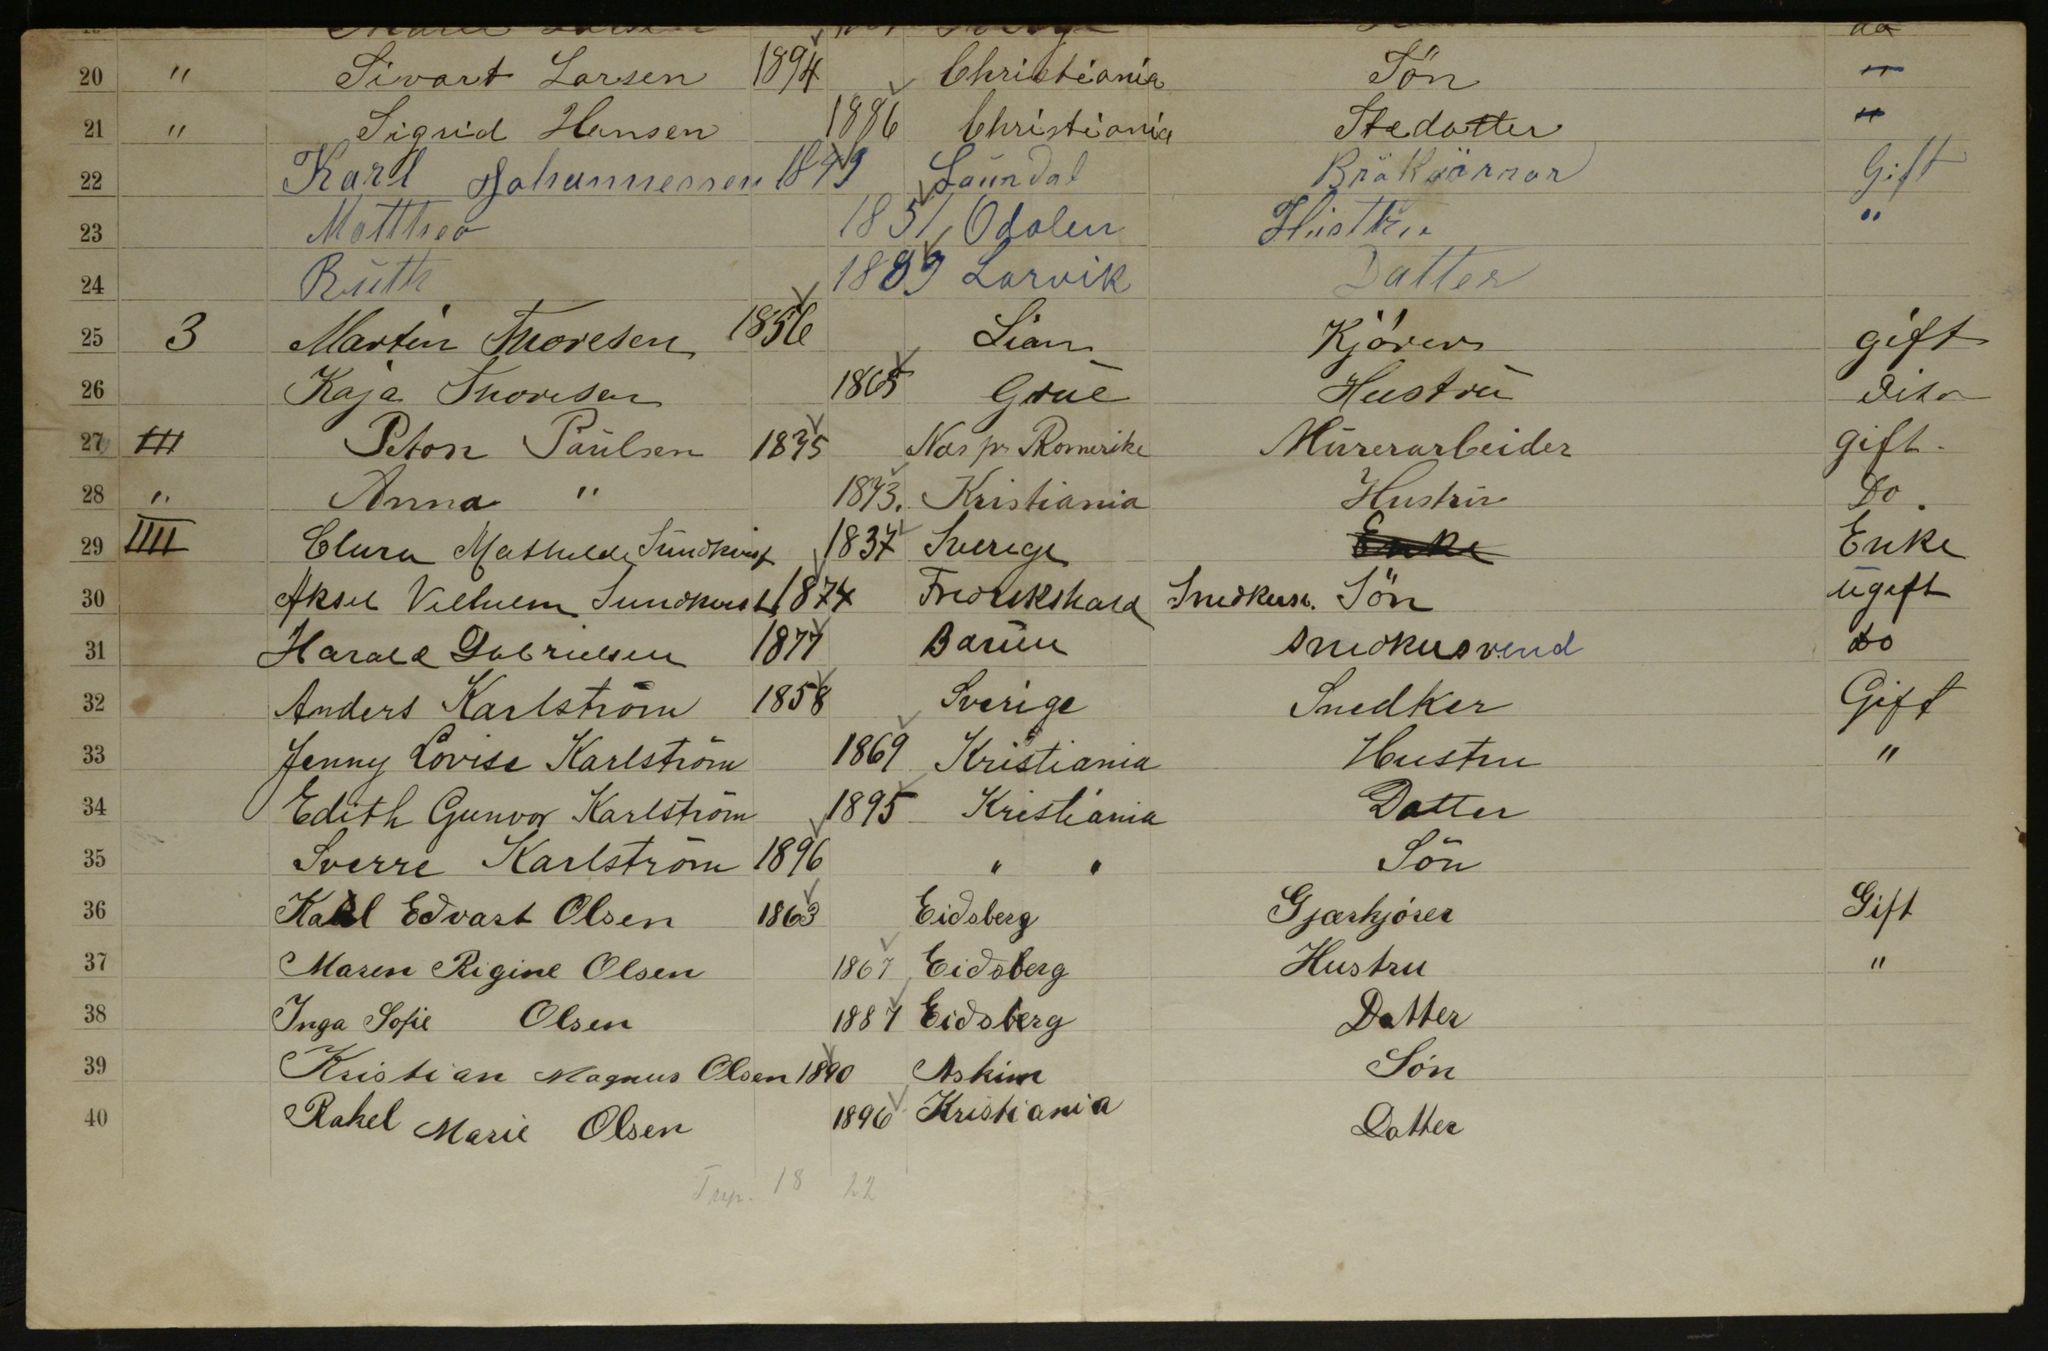 20 " Sivart Larsen 1894 Christiania Sön "
21 " Sigrid Hansen 1886 Christiania Stedatter "
22 Karl Johannessen 1849 Laurdal Gift
23 Matthea 1851 Odalen Hustru "
24 Ruth 1889 Larvik Datter
25 3 Martin Thoresen 1856 Lian Kjörer gift
26 Kaja Thoresen 1865 Grue Hustru dito
27 III Peton Paulsen 1875 Næs p. Romerike Murerarbeider gift.
28 " Anna " 1873. Kristiania Hustru Do.
29 IIII Clara Mathilde Sundkvist 1837 Sverige Enke Enke
30 Aksel Vilhelm Sundkvist 1874 Fredrikshald Snedkersv. Sön ugift
31 Harald Gabrielsen 1877 Bærum Snedkersvend do
32 Anders Karlström 1858 Sverige Snedker Gift
33 Jenny Lovise Karlström 1869 Kristiania Hustru "
34 Edith Gunvor Karlström 1895 Kristiania Datter
35 Sverre Karlström 1896 " " Sön
36 Karl Edvart Olsen 1863 Eidsberg Gjærkjörer Gift
37 Maren Rigine Olsen 1867 Eidsberg Hustru "
38 Inga Sofie Olsen 1887 Eidsberg Datter
39 Kristian Magnus Olsen 1890 Askim Sön
40 Rakel Marie Olsen 1896 Kristiania Datter
18 22